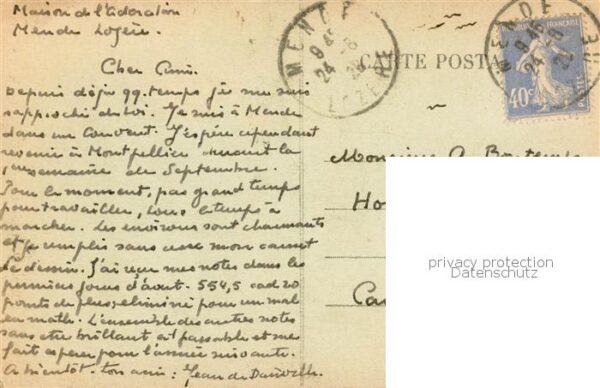 Maison de l'Adoration
Mende Lozère.
Cher Ami.
Depuis déjà qq. temps je me suis
rapproché de toi. Je suis à Mende
dans un Couvent. J'espère cependant
revenir à Montpellier durant la
1re semaine de Septembre.
Pour le moment, pas grand temps
pour travailler, tous le temps à
marcher. Les environs sont charmants
et je remplis sans cesse mon carnet
de dessin. J'ai reçu mes notes dans les
premiers jours d'août - 554,5 cad 20
points de plus, éliminé pour un mal
en math. L'ensemble des autres notes
sans être brillant est passable et me
fait espérer pour l'année suivante.
A bientôt - ton ami : Jean de
MENDE
LOZERE
CARTE POSTA
MENDE
FRANÇAISE
40c
POSTES
Monsieur A.
Ho
Ca
privacy protection
Datenschutz